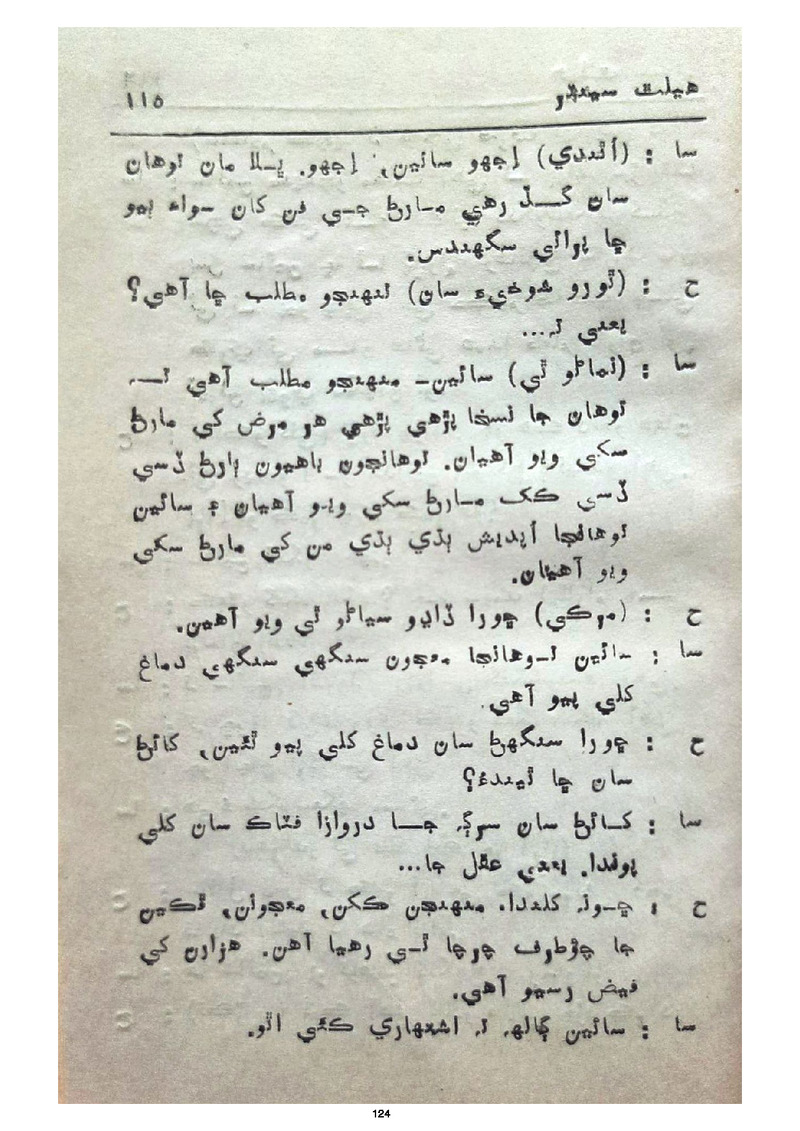 هيلٿ سينٽر ۱۱۵
سا : (اُٿندي) اِجهو سائين، اِجهو. ڀـلا مان توهان
سان گـــڏ رهي مـارڻ جـي فن کان سواءِ ٻيو
ڇا پرائي سگهندس.
ح : (ٿورو شوخيءَ سان) تنهنجو مطلب ڇا آهي؟
يعني تہ...
سا : (نماڻو ٿي) سائين– منهنجو مطلب آهي تــہ
توهان جا نسخا پڙهي پڙهي هر مرض کي مارڻ
سکي ويو آهيان. توهانجون باهيون ٻارڻ ڏسي
ڏسي ڪک مـارڻ سکي ويـو آهيان ۽ سائين
توهانجا اُپديش ٻڌي ٻڌي من کي مارڻ سکي
ويو آهيان.
ح : (مرڪي) ڇورا ڏاڍو سياڻو ٿي ويو آهين.
سا : سائين تـوهانجا معجون سنگهي سنگهي دماغ
کلي پيو آهي.
ح : ڇورا سنگهڻ سان دماغ کلي پيو ٿئين، کائڻ
سان ڇا ٿيندءِ؟
سا : کـائڻ سان سرڳہ جـــا دروازا فٽاڪ سان کلي
پوندا. يعني عقل جا...
ح : ڇـونہ کلندا. منهنجن ڪڪن، معجونن، ٿڪين
جا چؤطرف چرچا ٿـي رهيا آهن. هزارن کي
فيض رسيو آهي.
سا : سائين ڳالهہ تہ اشتهاري ڪئي اٿو.
124